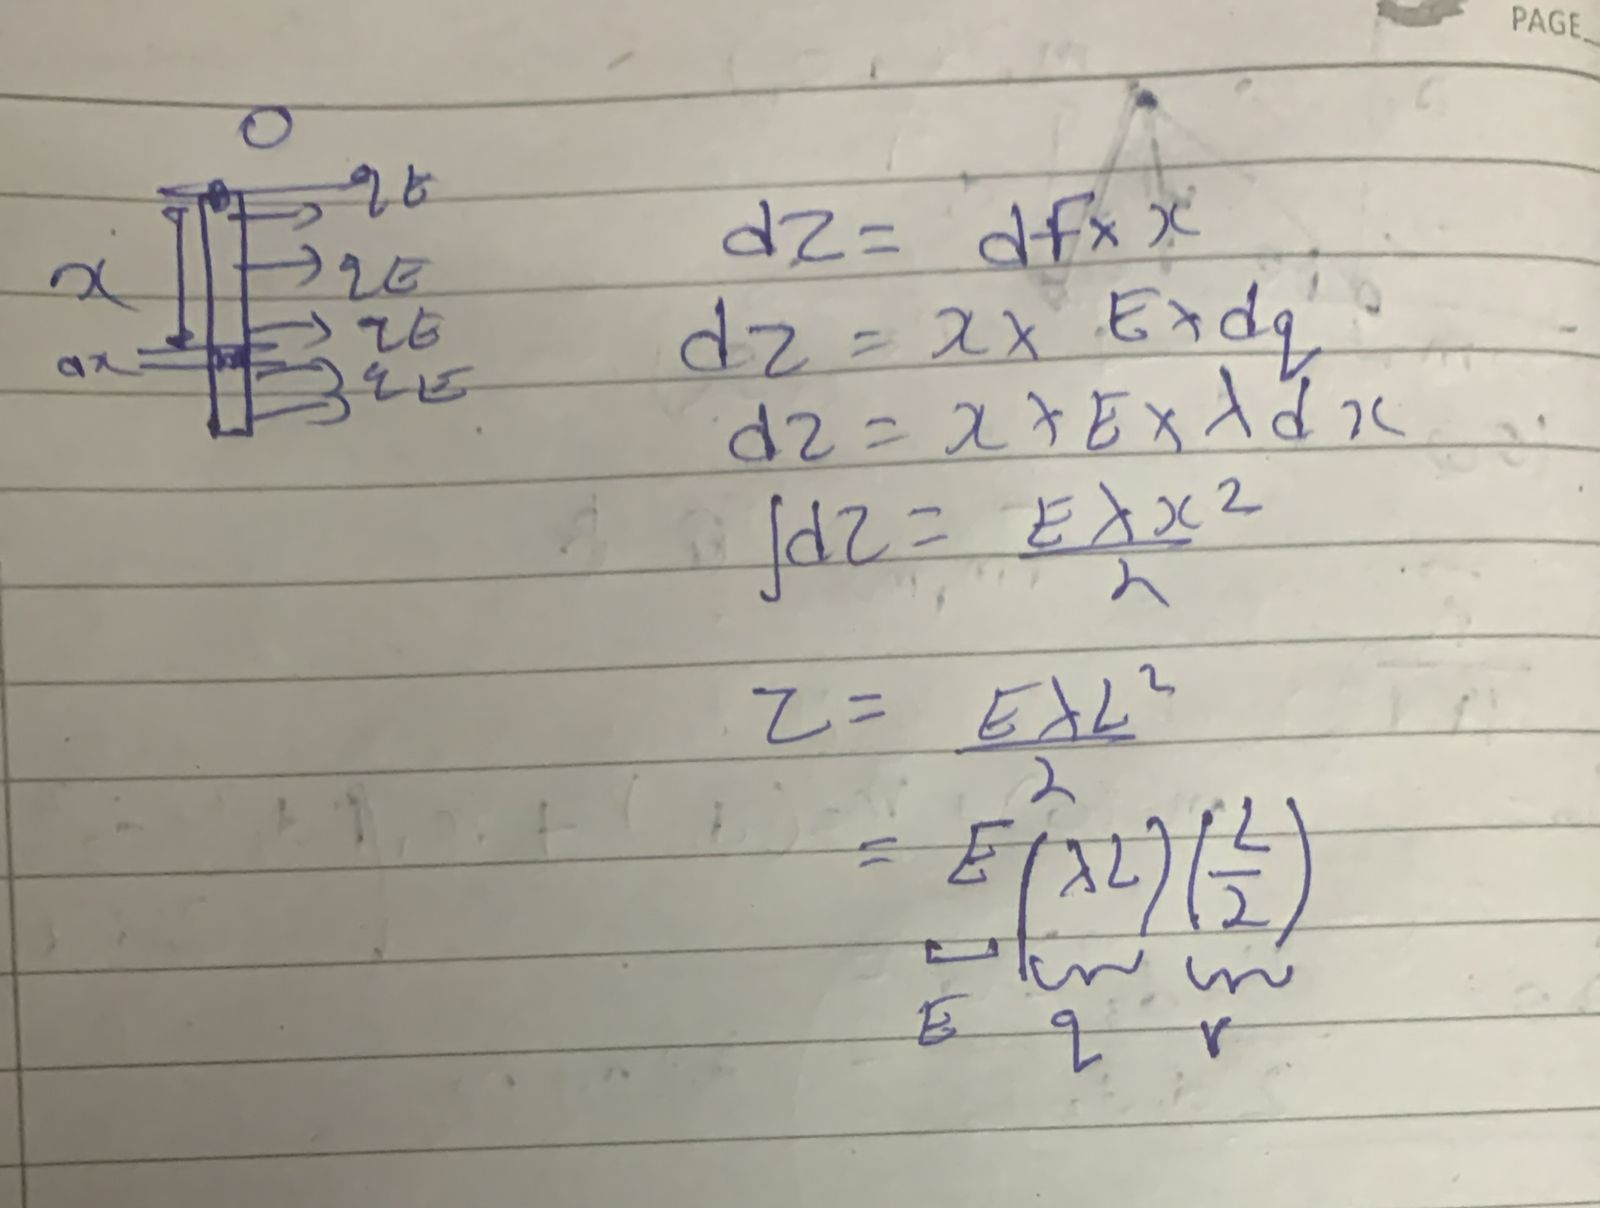 PAGE
O
qE
x
qE
qE
dx
qE
dτ = dF × x
dτ = x × E × dq
dτ = x × E × λ d x
∫dτ = Eλx²/2
τ = EλL²/2
= E (λL) (L/2)
E q r